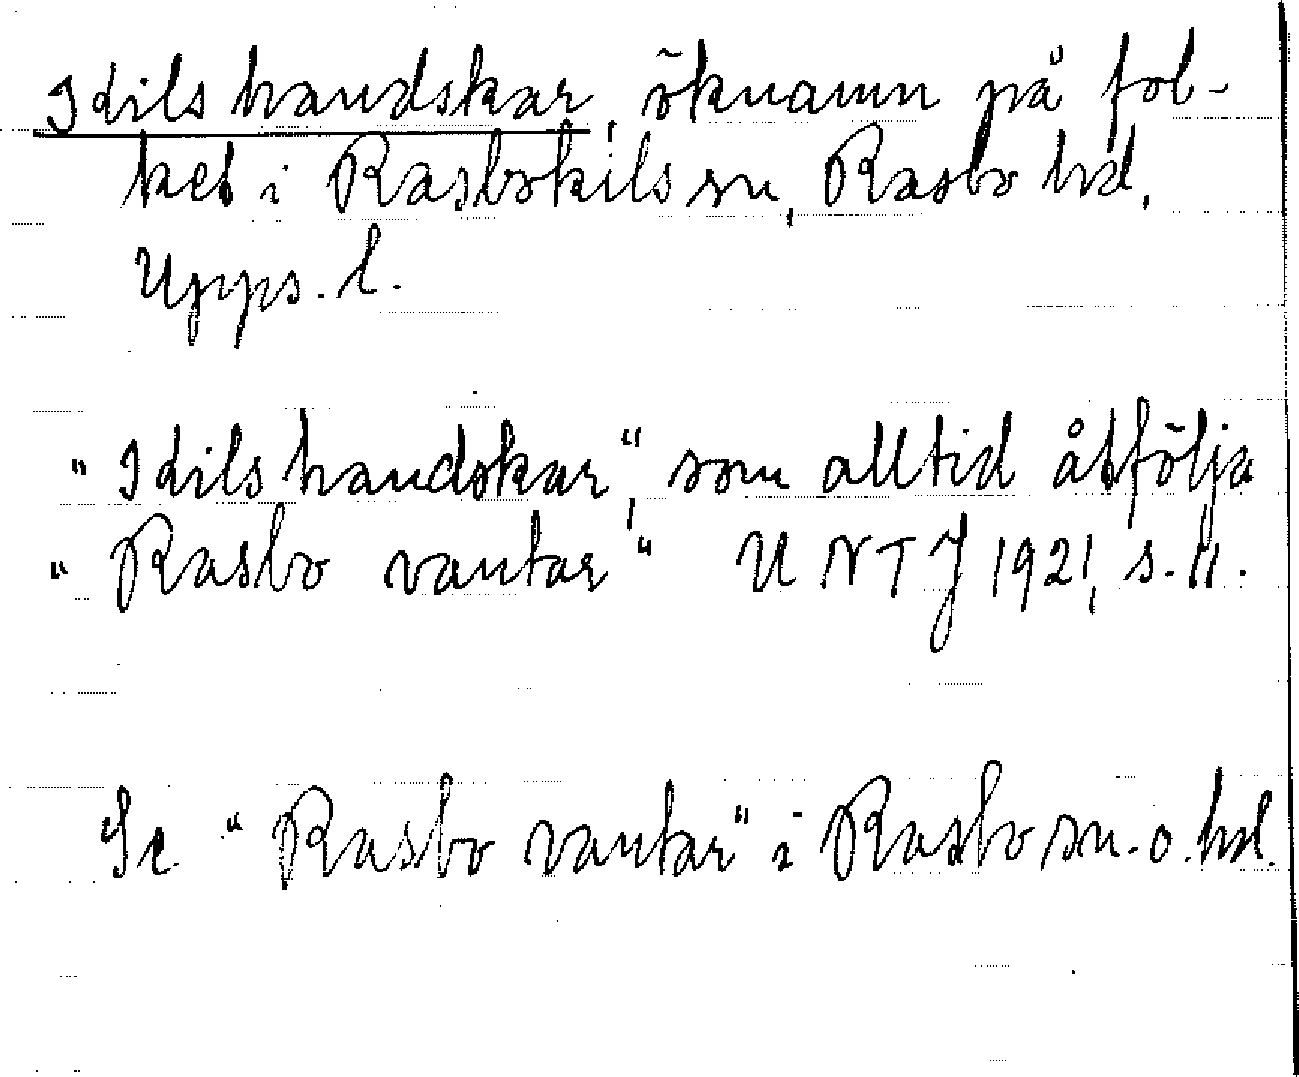 Idilshandskar, öknamn på fol-
ket i Rasbokils sn, Rasbo hd,
Upps. l.
"Idilshandskar", som alltid åtfölja
"Rasbo vantar" UNTJ 1921, s. 11.
Se "Rasbo vantar" i Rasbo sn. o. hd.